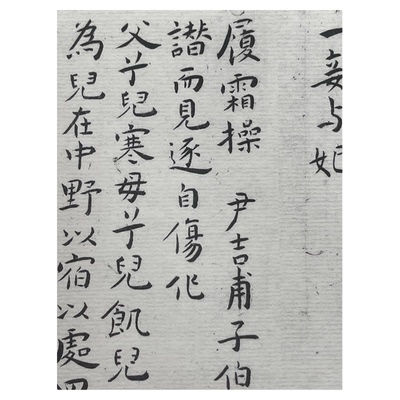 一妾与妃
履霜操 尹吉甫子伯
譖而見逐自傷作
父兮兒寒母兮兒飢兒
為兒在中野以宿以處四